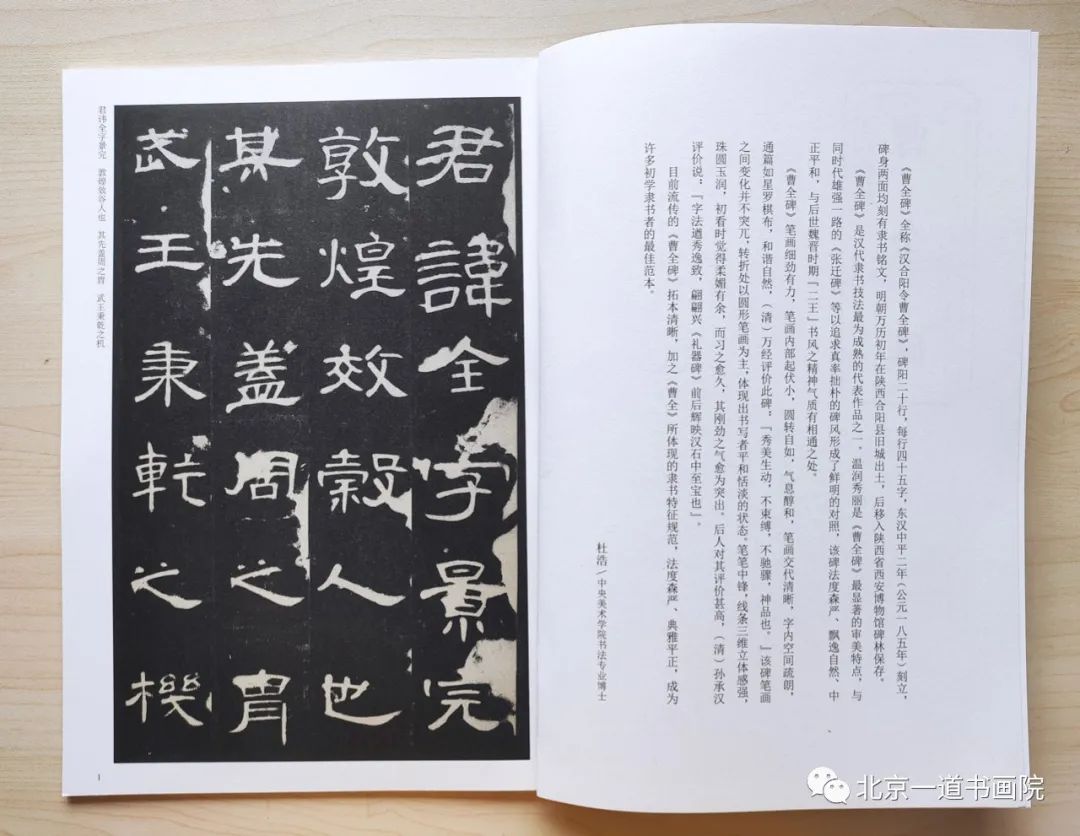 《曹全碑》全称《汉合阳令曹全碑》，碑阳二十行，每行四十五字，东汉中平二年（公元一八五年）刻立，
碑身两面均刻有隶书铭文，明朝万历初年在陕西合阳县旧城出土，后移入陕西省西安博物馆碑林保存。
《曹全碑》是汉代隶书技法最为成熟的代表作品之一。温润秀丽是《曹全碑》最显著的审美特点，与
同时代雄强一路的《张迁碑》等以追求真率拙朴的碑风形成了鲜明的对照，该碑法度森严、飘逸自然、中
正平和，与后世魏晋时期「二王」书风之精神气质有相通之处。
《曹全碑》笔画细劲有力，笔画内部起伏小，圆转自如，气息醇和，笔画交代清晰，字内空间疏朗，
通篇如星罗棋布，和谐自然，（清）万经评价此碑：「秀美生动，不束缚，不驰骤，神品也。」该碑笔画
之间变化并不突兀，转折处以圆形笔画为主，体现出书写者平和恬淡的状态。笔笔中锋，线条三维立体感强，
珠圆玉润，初看时觉得柔媚有余，而习之愈久，其刚劲之气愈为突出。后人对其评价甚高，（清）孙承汉
评价说：「字法遒秀逸致，翩翩兴《礼器碑》前后辉映汉石中至宝也」。
目前流传的《曹全碑》拓本清晰，加之《曹全》所体现的隶书特征规范，法度森严、典雅平正，成为
许多初学隶书者的最佳范本。
杜浩（中央美术学院书法专业博士
君諱全字景完
敦煌效穀人也
其先蓋周之胄
武王秉乾之機
君讳全字景完 敦煌效谷人也 其先盖周之胄 武王秉乾之机
1
北京一道书画院